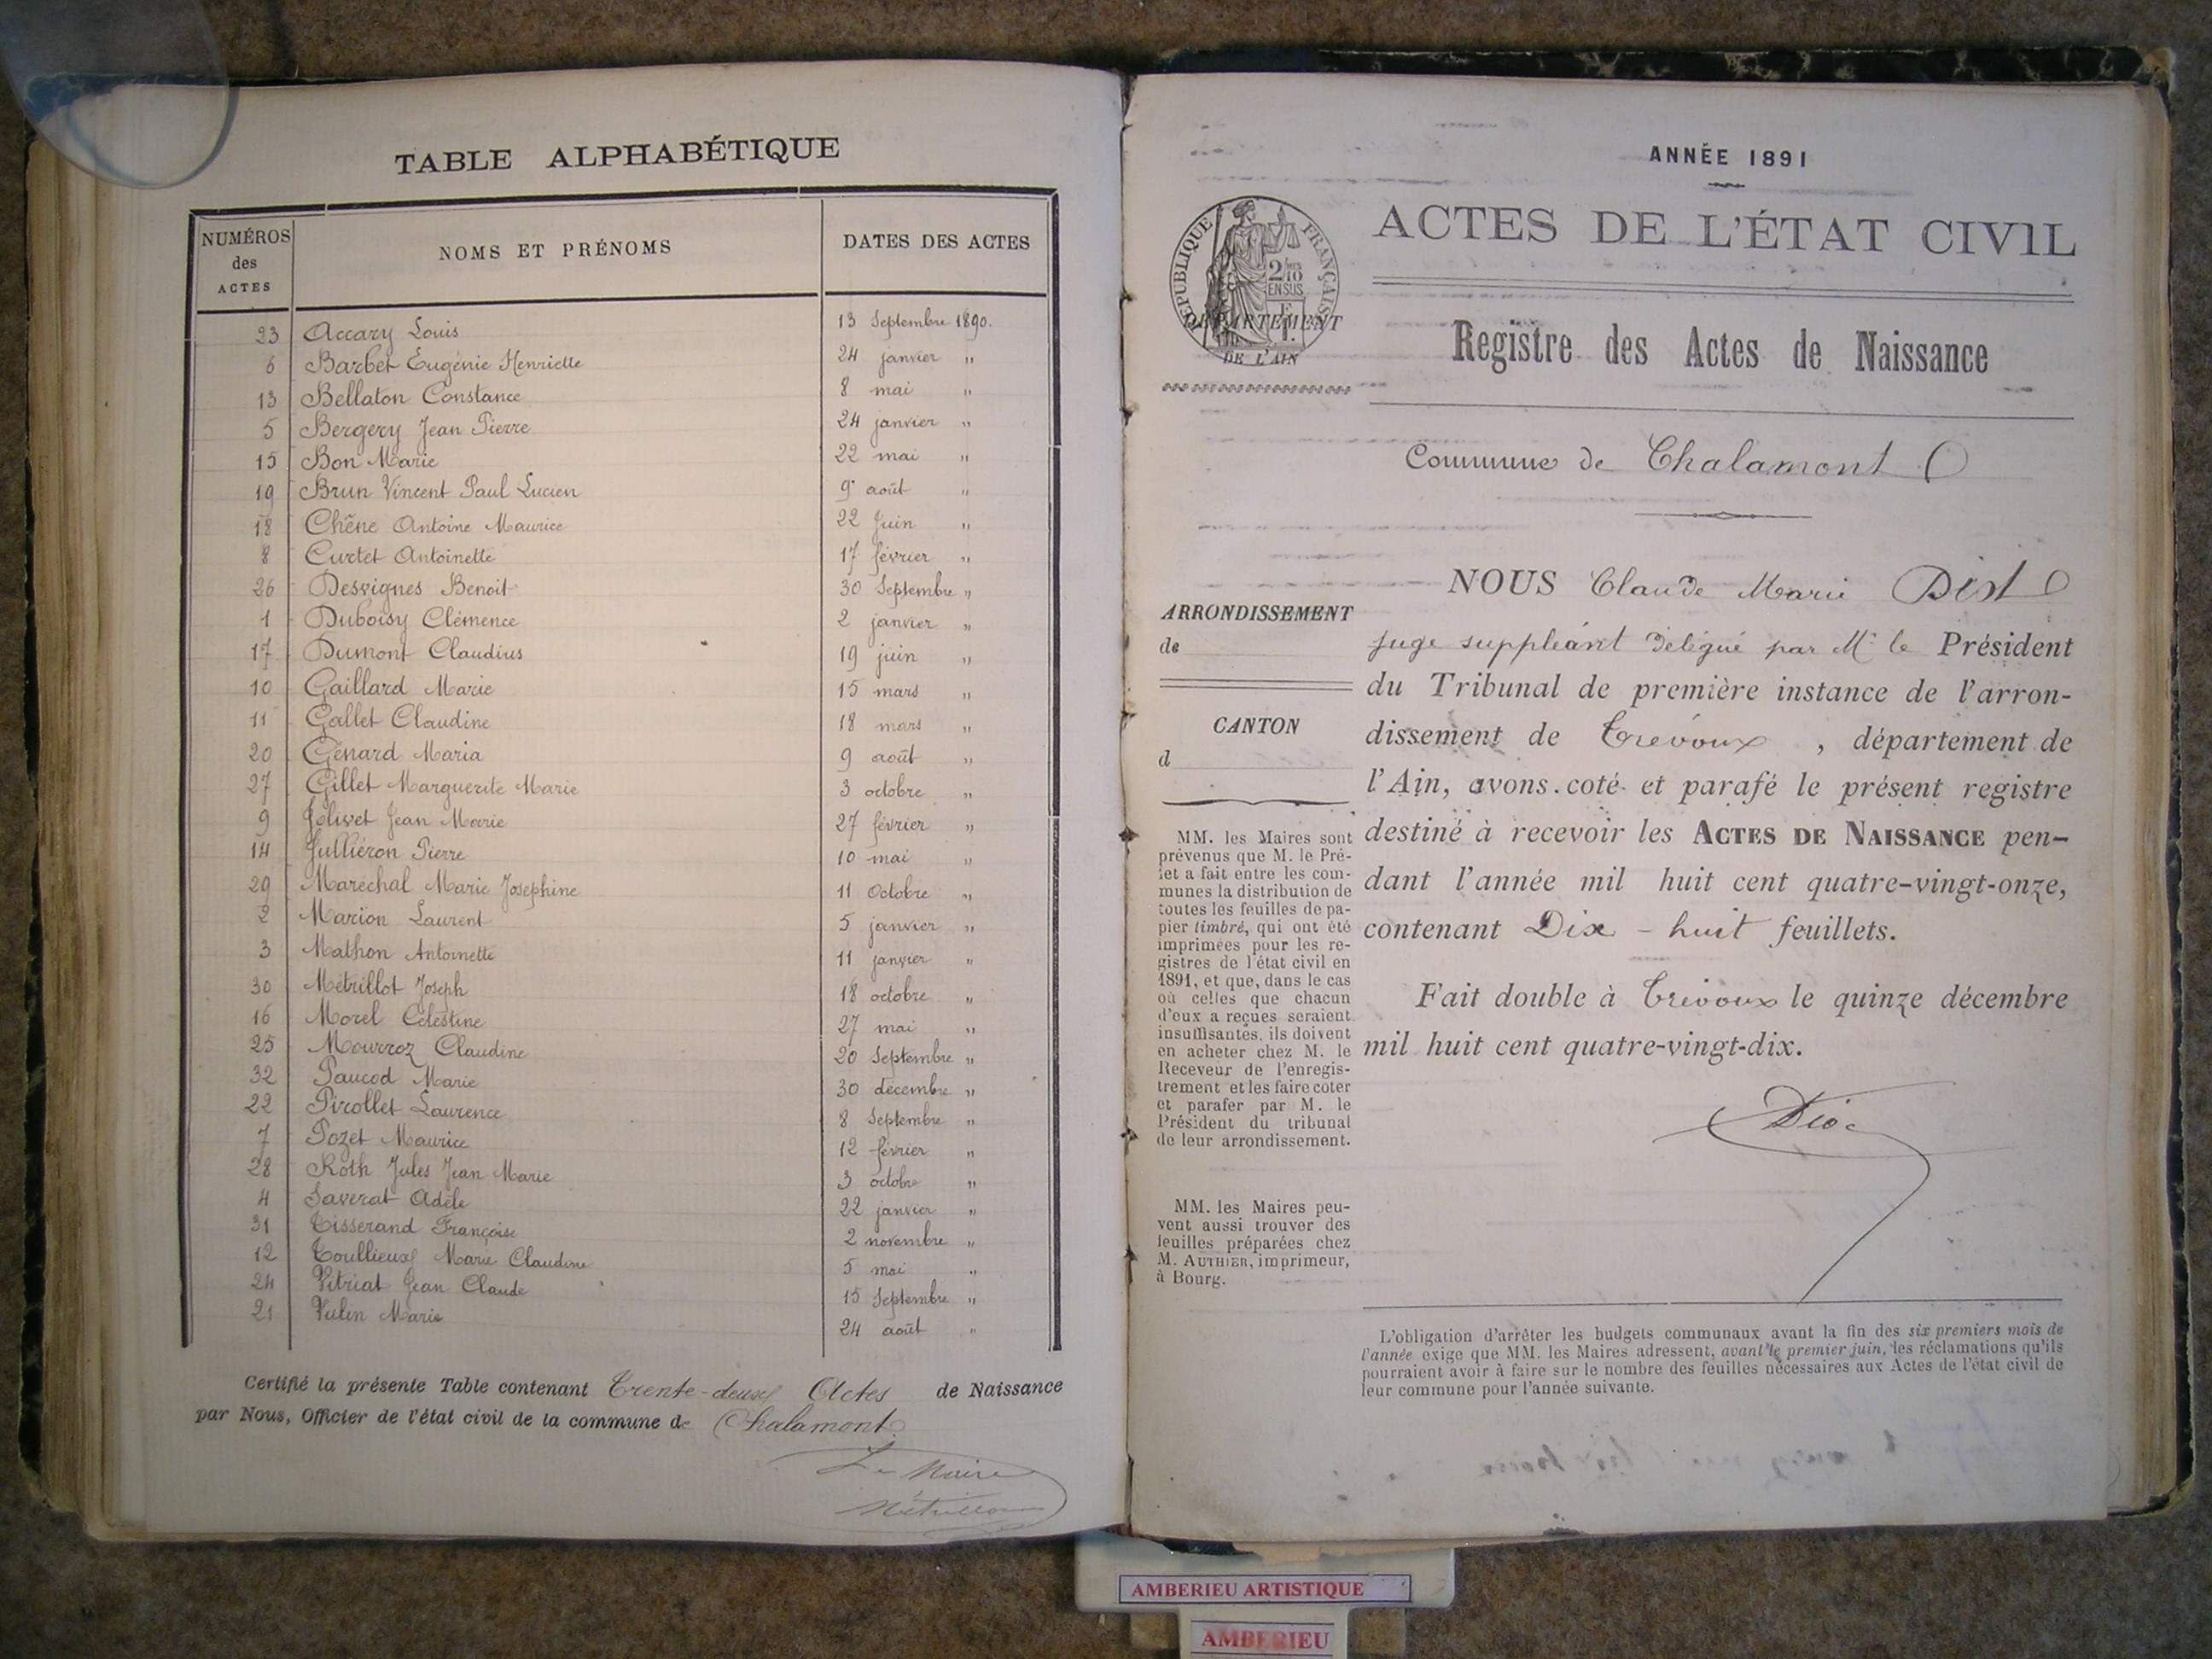 TABLE ALPHABÉTIQUE
NUMÉROS des ACTES NOMS ET PRÉNOMS DATES DES ACTES
23 Accary Louis 13 Septembre 1890.
6 Barbet Eugénie Henriette 24 janvier "
13 Bellaton Constance 8 mai "
5 Bergery Jean Pierre 24 janvier "
15 Bon Marie 22 mai "
19 Brun Vincent Paul Lucien 9 août "
18 Chêne Antoine Maurice 22 Juin "
8 Curtet Antoinette 17 février "
26 Desvignes Benoit 30 Septembre "
1 Duboisy Clémence 2 janvier "
17 Dumont Claudius 19 juin "
10 Gaillard Marie 15 mars "
11 Gallet Claudine 18 mars "
20 Génard Maria 9 août "
27 Gillet Marguerite Marie 3 octobre "
9 Jolivet Jean Marie 27 février "
14 Julliéron Pierre 10 mai "
29 Maréchal Marie Joséphine 11 Octobre "
2 Marion Laurent 5 janvier "
3 Mathon Antoinette 11 janvier "
30 Métrillot Joseph 18 octobre "
16 Morel Célestine 27 mai "
25 Mourroz Claudine 20 Septembre "
32 Paucod Marie 30 décembre "
22 Pirollet Laurence 8 Septembre "
7 Pozet Maurice 12 février "
28 Roth Jules Jean Marie 3 octobre "
4 Saverat Adèle 22 janvier "
31 Tisserand Françoise 2 novembre "
12 Toullieux Marie Claudine 5 mai "
24 Vitriat Jean Claude 15 Septembre "
21 Vulin Marie 24 août "
Certifié la présente Table contenant Trente-deux Actes de Naissance
par Nous, Officier de l'état civil de la commune de Chalamont
Le Maire
ANNÉE 1891
RÉPUBLIQUE FRANÇAISE
2/10 EN SUS
DÉPARTEMENT
DE L'AIN
ACTES DE L'ÉTAT CIVIL
Registre des Actes de Naissance
Commune de Chalamont
ARRONDISSEMENT
de
CANTON
d
MM. les Maires sont
prévenus que M. le Pré-
fet a fait entre les com-
munes la distribution de
toutes les feuilles de pa-
pier timbré, qui ont été
imprimées pour les re-
gistres de l'état civil en
1891, et que, dans le cas
où celles que chacun
d'eux a reçues seraient
insuffisantes, ils doivent
en acheter chez M. le
Receveur de l'enregis-
trement et les faire coter
et parafer par M. le
Président du tribunal
de leur arrondissement.
MM. les Maires peu-
vent aussi trouver des
feuilles préparées chez
M. AUTHIER, imprimeur,
à Bourg.
NOUS Claude Marie
juge suppléant délégué par Mr le Président
du Tribunal de première instance de l'arron-
dissement de Trévoux , département de
l'Ain, avons coté et parafé le présent registre
destiné à recevoir les ACTES DE NAISSANCE pen-
dant l'année mil huit cent quatre-vingt-onze,
contenant Dix - huit feuillets.
Fait double à Trévoux le quinze décembre
mil huit cent quatre-vingt-dix.
L'obligation d'arrêter les budgets communaux avant la fin des six premiers mois de
l'année exige que MM. les Maires adressent, avant le premier juin, les réclamations qu'ils
pourraient avoir à faire sur le nombre des feuilles nécessaires aux Actes de l'état civil de
leur commune pour l'année suivante.
AMBERIEU ARTISTIQUE
AMBERIEU